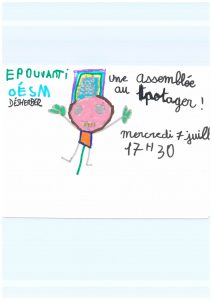 EPOUVANTI
DÉSM
DÉSHERBER
une assemblée
au potager !
mercredi 7 juill
17 H 30